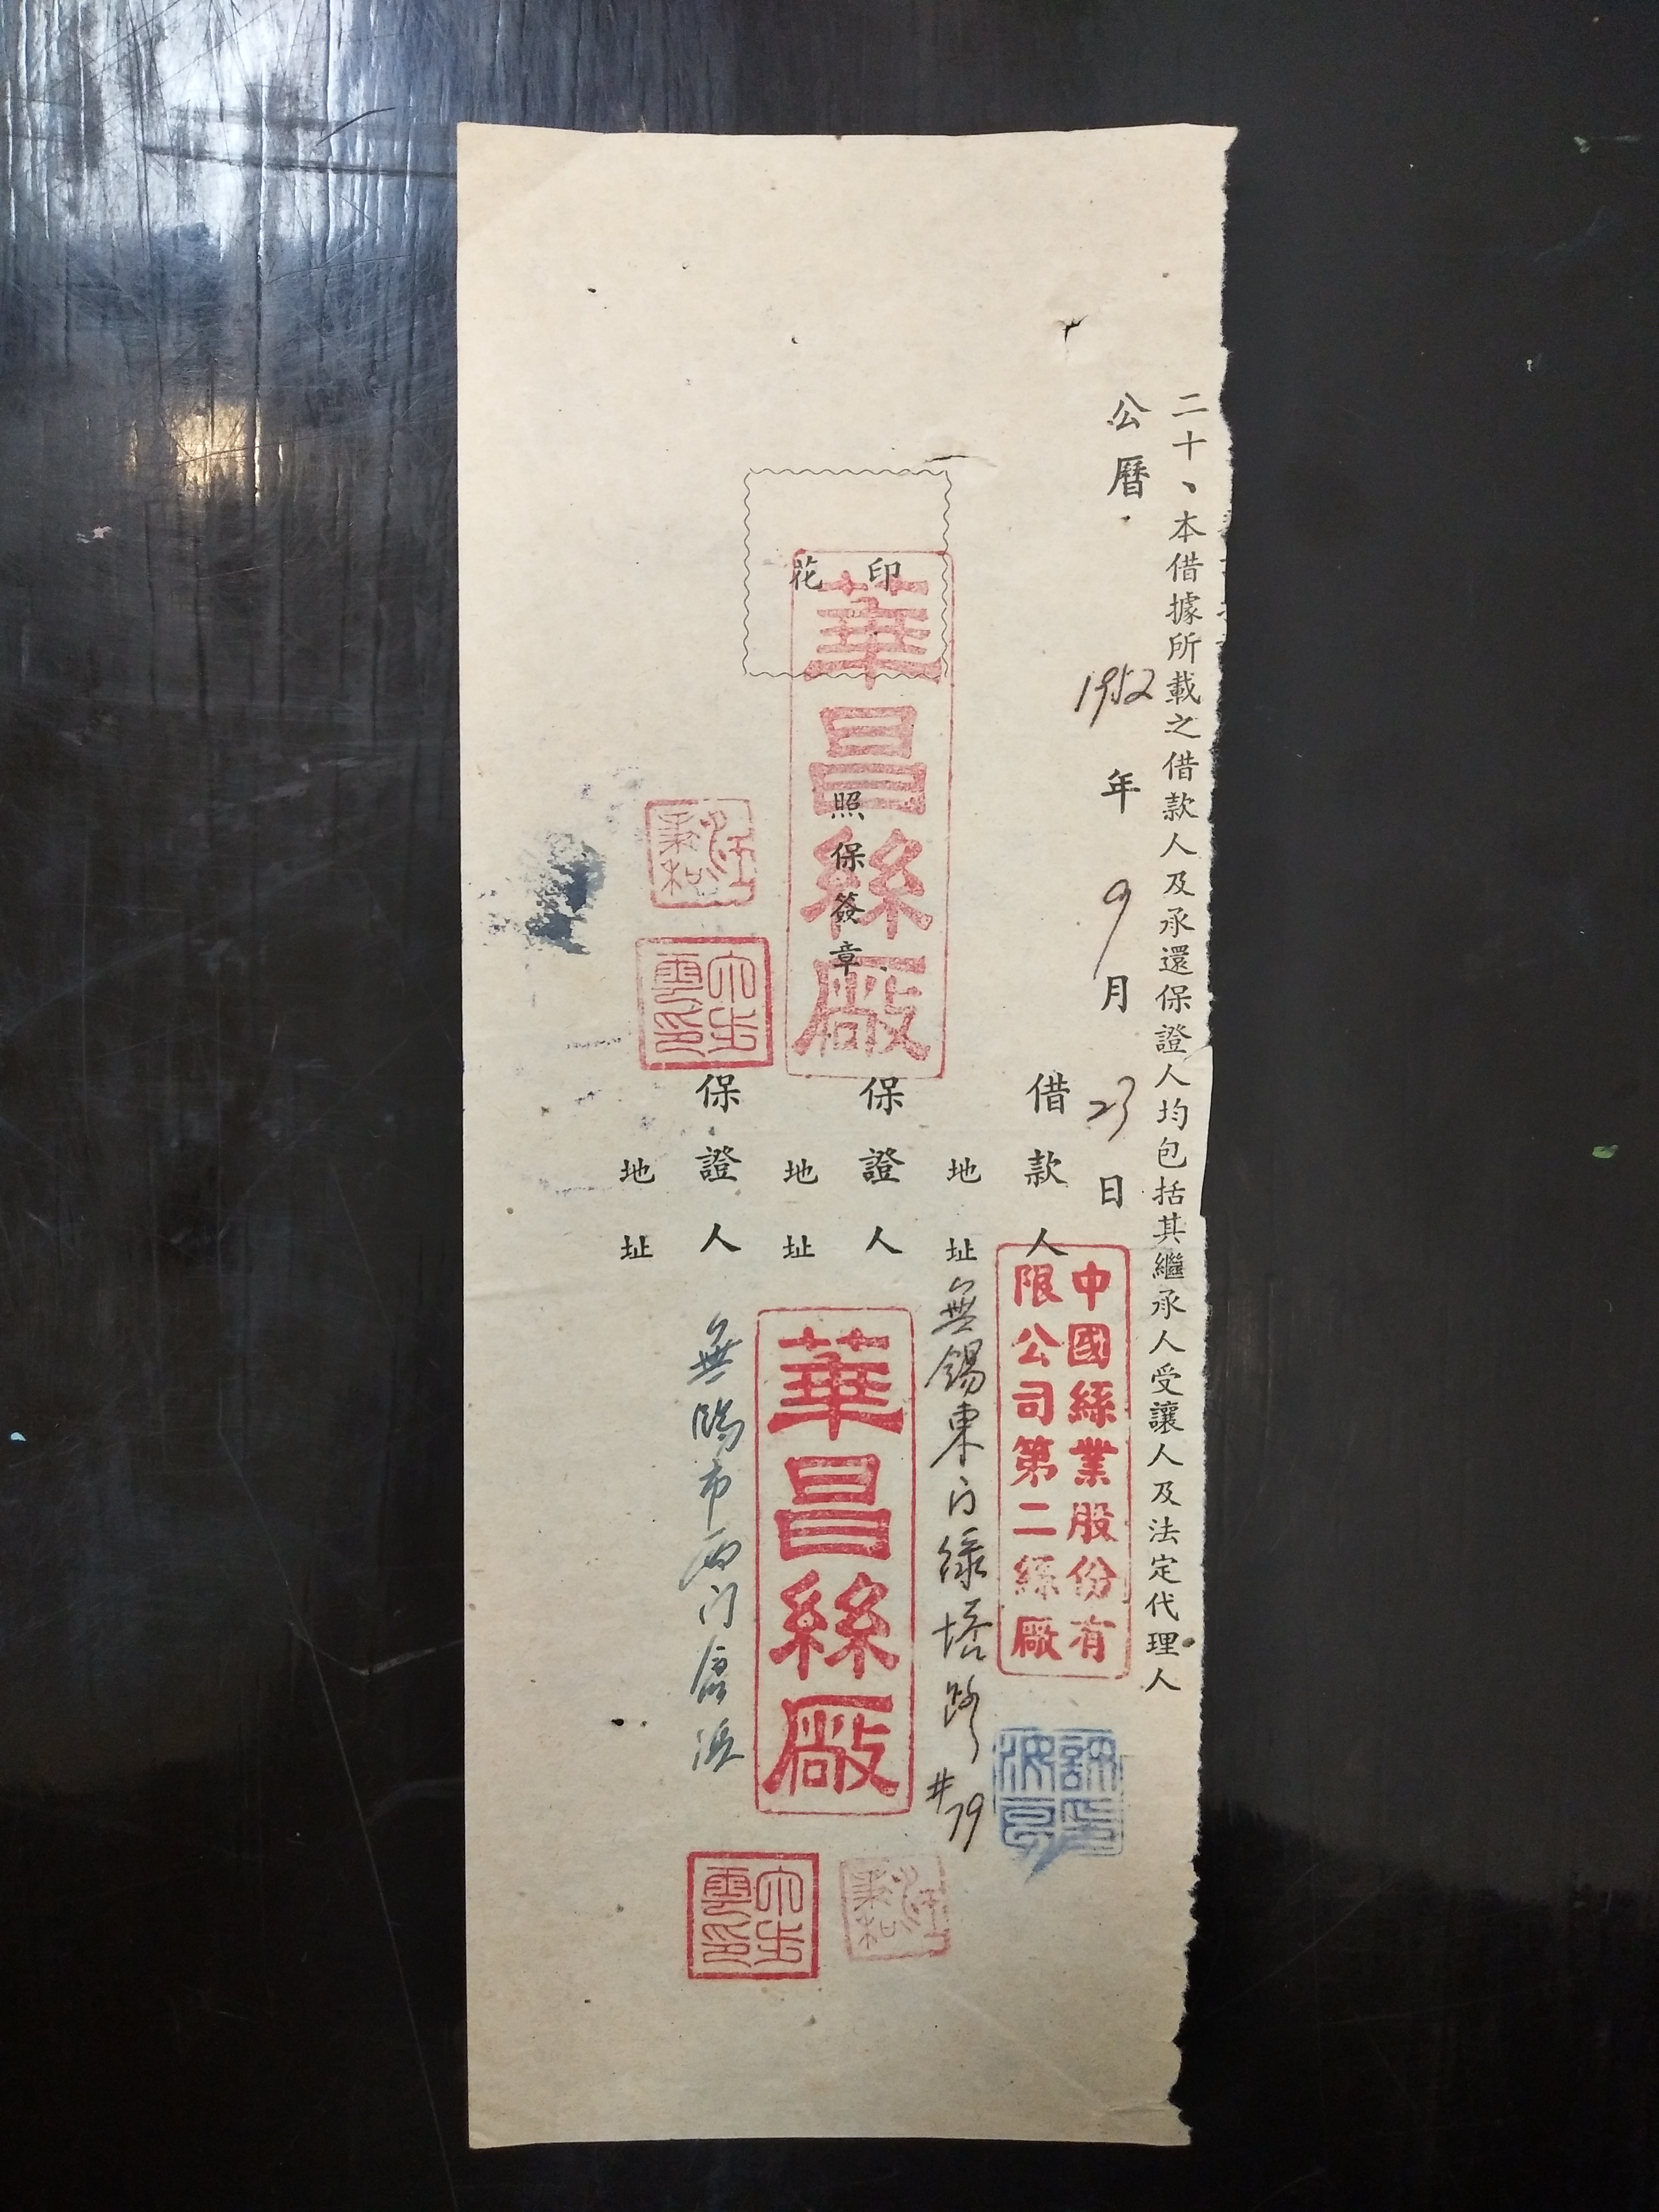 二十、本借據所載之借款人及承還保證人均包括其繼承人受讓人及法定代理人
公曆 1952 年 9 月 23 日
借款人
中國絲業股份有
限公司第二絲廠
地址 無錫東门綠塔路#79
印花
華昌絲廠
照保簽章
保證人
華昌絲廠
地址
保證人
無錫市西门倉浜
地址